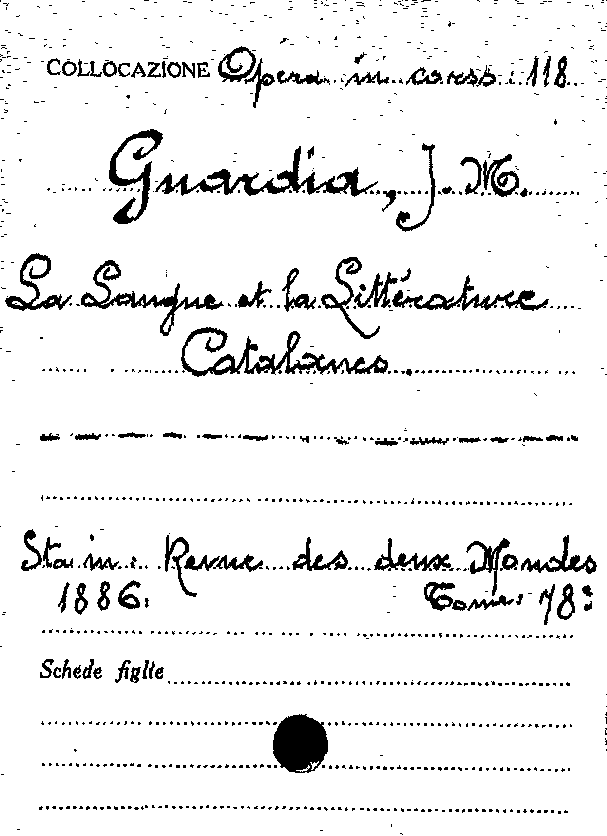 COLLOCAZIONE Opera in corso 118
Guardia, J. M.
La Langue et la Littérature
Catalanes.
Sta in: Revue des deux Mondes
1886. Tome: 78º
Schede figlie